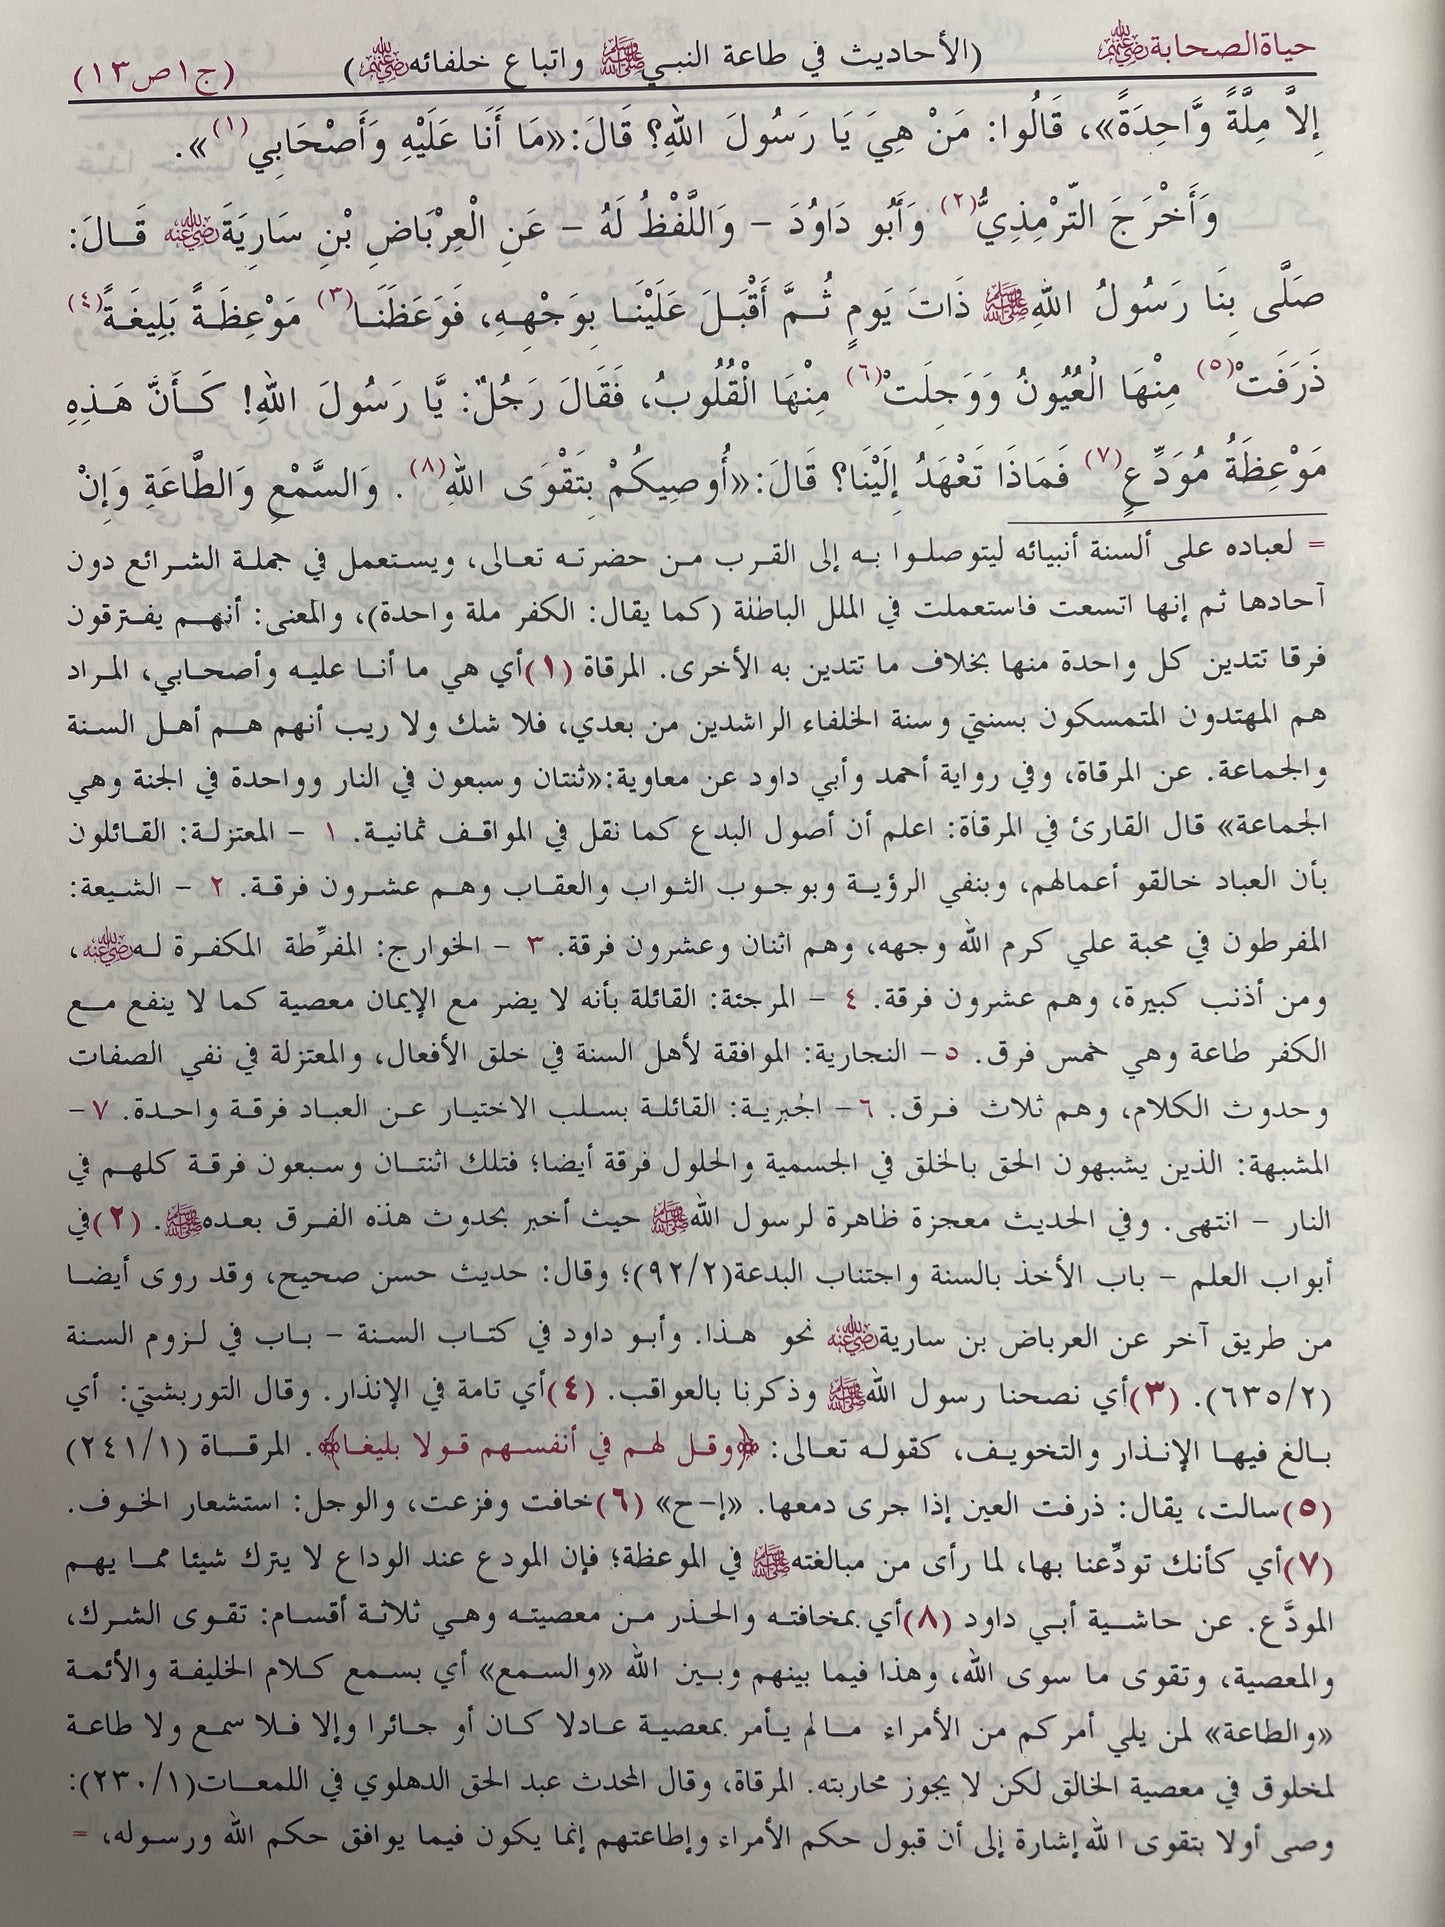 حياة الصحابة رضي الله عنهم (الأحاديث في طاعة النبي ﷺ واتباع خلفائه رضي الله عنهم) (ج١ص١٣)
إِلاَّ مِلَّةً وَّاحِدَةً»، قَالُوا: مَنْ هِيَ يَا رَسُولَ اللهِ؟ قَالَ:«مَا أَنَا عَلَيْهِ وَأَصْحَابِي(١)».
وَأَخْرَجَ التِّرْمِذِيُّ(٢) وَأَبُو دَاوُدَ – وَاللَّفْظُ لَهُ – عَنِ الْعِرْبَاضِ بْنِ سَارِيَةَ رضي الله عنه قَالَ:
صَلَّى بِنَا رَسُولُ اللهِ ﷺ ذَاتَ يَومٍ ثُمَّ أَقْبَلَ عَلَيْنَا بِوَجْهِهِ، فَوَعَظَنَا(٣) مَوْعِظَةً بَلِيغَةً(٤)
ذَرَفَتْ(٥) مِنْهَا الْعُيُونُ وَوَجِلَتْ(٦) مِنْهَا الْقُلُوبُ، فَقَالَ رَجُلٌ: يَّا رَسُولَ اللهِ! كَأَنَّ هَذِهِ
مَوْعِظَةُ مُوَدِّعٍ(٧) فَمَاذَا تَعْهَدُ إِلَيْنَا؟ قَالَ:«أُوصِيكُمْ بِتَقْوَى اللهِ(٨). وَالسَّمْعِ وَالطَّاعَةِ وَإِنْ
= لعباده على ألسنة أنبيائه ليتوصلوا به إلى القرب من حضرته تعالى، ويستعمل في جملة الشرائع دون
آحادها ثم إنها اتسعت فاستعملت في الملل الباطلة (كما يقال: الكفر ملة واحدة)، والمعنى: أنهم يفترقون
فرقا تتدين كل واحدة منها بخلاف ما تتدين به الأخرى. المرقاة (١)أي هي ما أنا عليه وأصحابي، المراد
هم المهتدون المتمسكون بسنتي وسنة الخلفاء الراشدين من بعدي، فلا شك ولا ريب أنهم هم أهل السنة
والجماعة. عن المرقاة، وفي رواية أحمد وأبي داود عن معاوية:«ثنتان وسبعون في النار وواحدة في الجنة وهي
الجماعة» قال القارئ في المرقاة: اعلم أن أصول البدع كما نقل في المواقف ثمانية. ١ – المعتزلة: القائلون
بأن العباد خالقو أعمالهم، وبنفي الرؤية وبوجوب الثواب والعقاب وهم عشرون فرقة. ٢ – الشيعة:
المفرطون في محبة علي كرم الله وجهه، وهم اثنان وعشرون فرقة. ٣ – الخوارج: المفرِّطة المكفرة له رضي الله عنه،
ومن أذنب كبيرة، وهم عشرون فرقة. ٤ – المرجئة: القائلة بأنه لا يضر مع الإيمان معصية كما لا ينفع مع
الكفر طاعة وهي خمس فرق. ٥ – النجارية: الموافقة لأهل السنة في خلق الأفعال، والمعتزلة في نفي الصفات
وحدوث الكلام، وهم ثلاث فرق. ٦ – الجبرية: القائلة بسلب الاختيار عن العباد فرقة واحدة. ٧ –
المشبهة: الذين يشبهون الحق بالخلق في الجسمية والحلول فرقة أيضا؛ فتلك اثنتان وسبعون فرقة كلهم في
النار – انتهى. وفي الحديث معجزة ظاهرة لرسول الله ﷺ حيث أخبر بحدوث هذه الفرق بعده ﷺ. (٢)في
أبواب العلم – باب الأخذ بالسنة واجتناب البدعة(٩٢/٢)؛ وقال: حديث حسن صحيح، وقد روى أيضا
من طريق آخر عن العرباض بن سارية رضي الله عنه نحو هذا. وأبو داود في كتاب السنة – باب في لزوم السنة
(٦٣٥/٢). (٣)أي نصحنا رسول الله ﷺ وذكرنا بالعواقب. (٤)أي تامة في الإنذار. وقال التوربشتي: أي
بالغ فيها الإنذار والتخويف، كقوله تعالى: ﴿وقل لهم في أنفسهم قولا بليغا﴾. المرقاة (٢٤١/١)
(٥)سالت، يقال: ذرفت العين إذا جرى دمعها. «إ-ح» (٦)خافت وفزعت، والوجل: استشعار الخوف.
(٧)أي كأنك تودِّعنا بها، لما رأى من مبالغته ﷺ في الموعظة؛ فإن المودع عند الوداع لا يترك شيئا مما يهم
المودَّع. عن حاشية أبي داود (٨)أي بمخافته والحذر من معصيته وهي ثلاثة أقسام: تقوى الشرك،
والمعصية، وتقوى ما سوى الله، وهذا فيما بينهم وبين الله «والسمع» أي بسمع كلام الخليفة والأئمة
«والطاعة» لمن يلي أمركم من الأمراء مالم يأمر بمعصية عادلا كان أو جائرا وإلا فلا سمع ولا طاعة
لمخلوق في معصية الخالق لكن لا يجوز محاربته. المرقاة، وقال المحدث عبد الحق الدهلوي في اللمعات(٢٣٠/١):
وصى أولا بتقوى الله إشارة إلى أن قبول حكم الأمراء وإطاعتهم إنما يكون فيما يوافق حكم الله ورسوله، =